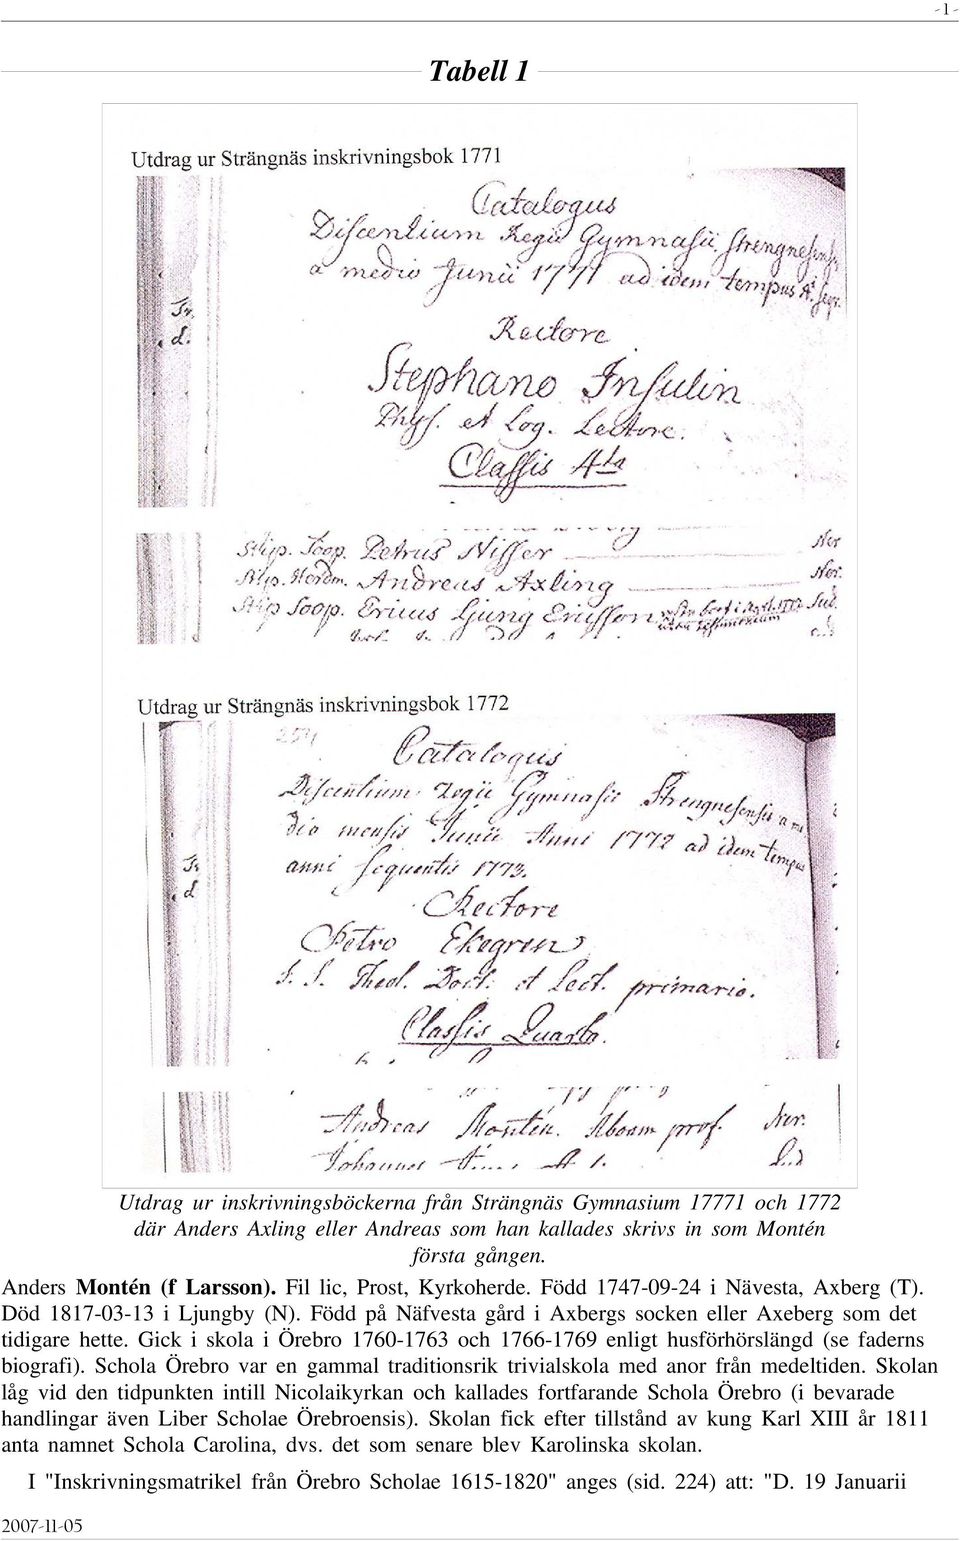 -1-
Tabell 1
Utdrag ur Strängnäs inskrivningsbok 1771
Catalogus
Discentium Regii Gymnasii Strengnesensis
a medio Junii 1771 ad idem tempus A! seqv.
Tr.
d.
Rectore
Stephano Insulin
Phys. et Log. Lectore.
Classis 4ta
Stip. Soop. Petrus Nisser Ner
Stip. Hordm. Andreas Axling Ner.
Stip Soop. Ericus Ljung Ericsson Sud.
Utdrag ur Strängnäs inskrivningsbok 1772
254
Catalogus
Discentium Regii Gymnasii Strengnesensis a me
dio mensis Junii Anni 1772 ad idem tempus
anni sequentis 1773.
Tr
d
Rectore
Petro Ekegren
S. S. Theol. Doct. et Lect. primario.
Classis Quarta.
Andreas Montén. Aboam prof. Ner.
Johannes
Utdrag ur inskrivningsböckerna från Strängnäs Gymnasium 17771 och 1772
där Anders Axling eller Andreas som han kallades skrivs in som Montén
första gången.
Anders Montén (f Larsson). Fil lic, Prost, Kyrkoherde. Född 1747-09-24 i Nävesta, Axberg (T).
Död 1817-03-13 i Ljungby (N). Född på Näfvesta gård i Axbergs socken eller Axeberg som det
tidigare hette. Gick i skola i Örebro 1760-1763 och 1766-1769 enligt husförhörslängd (se faderns
biografi). Schola Örebro var en gammal traditionsrik trivialskola med anor från medeltiden. Skolan
låg vid den tidpunkten intill Nicolaikyrkan och kallades fortfarande Schola Örebro (i bevarade
handlingar även Liber Scholae Örebroensis). Skolan fick efter tillstånd av kung Karl XIII år 1811
anta namnet Schola Carolina, dvs. det som senare blev Karolinska skolan.
I "Inskrivningsmatrikel från Örebro Scholae 1615-1820" anges (sid. 224) att: "D. 19 Januarii
2007-11-05